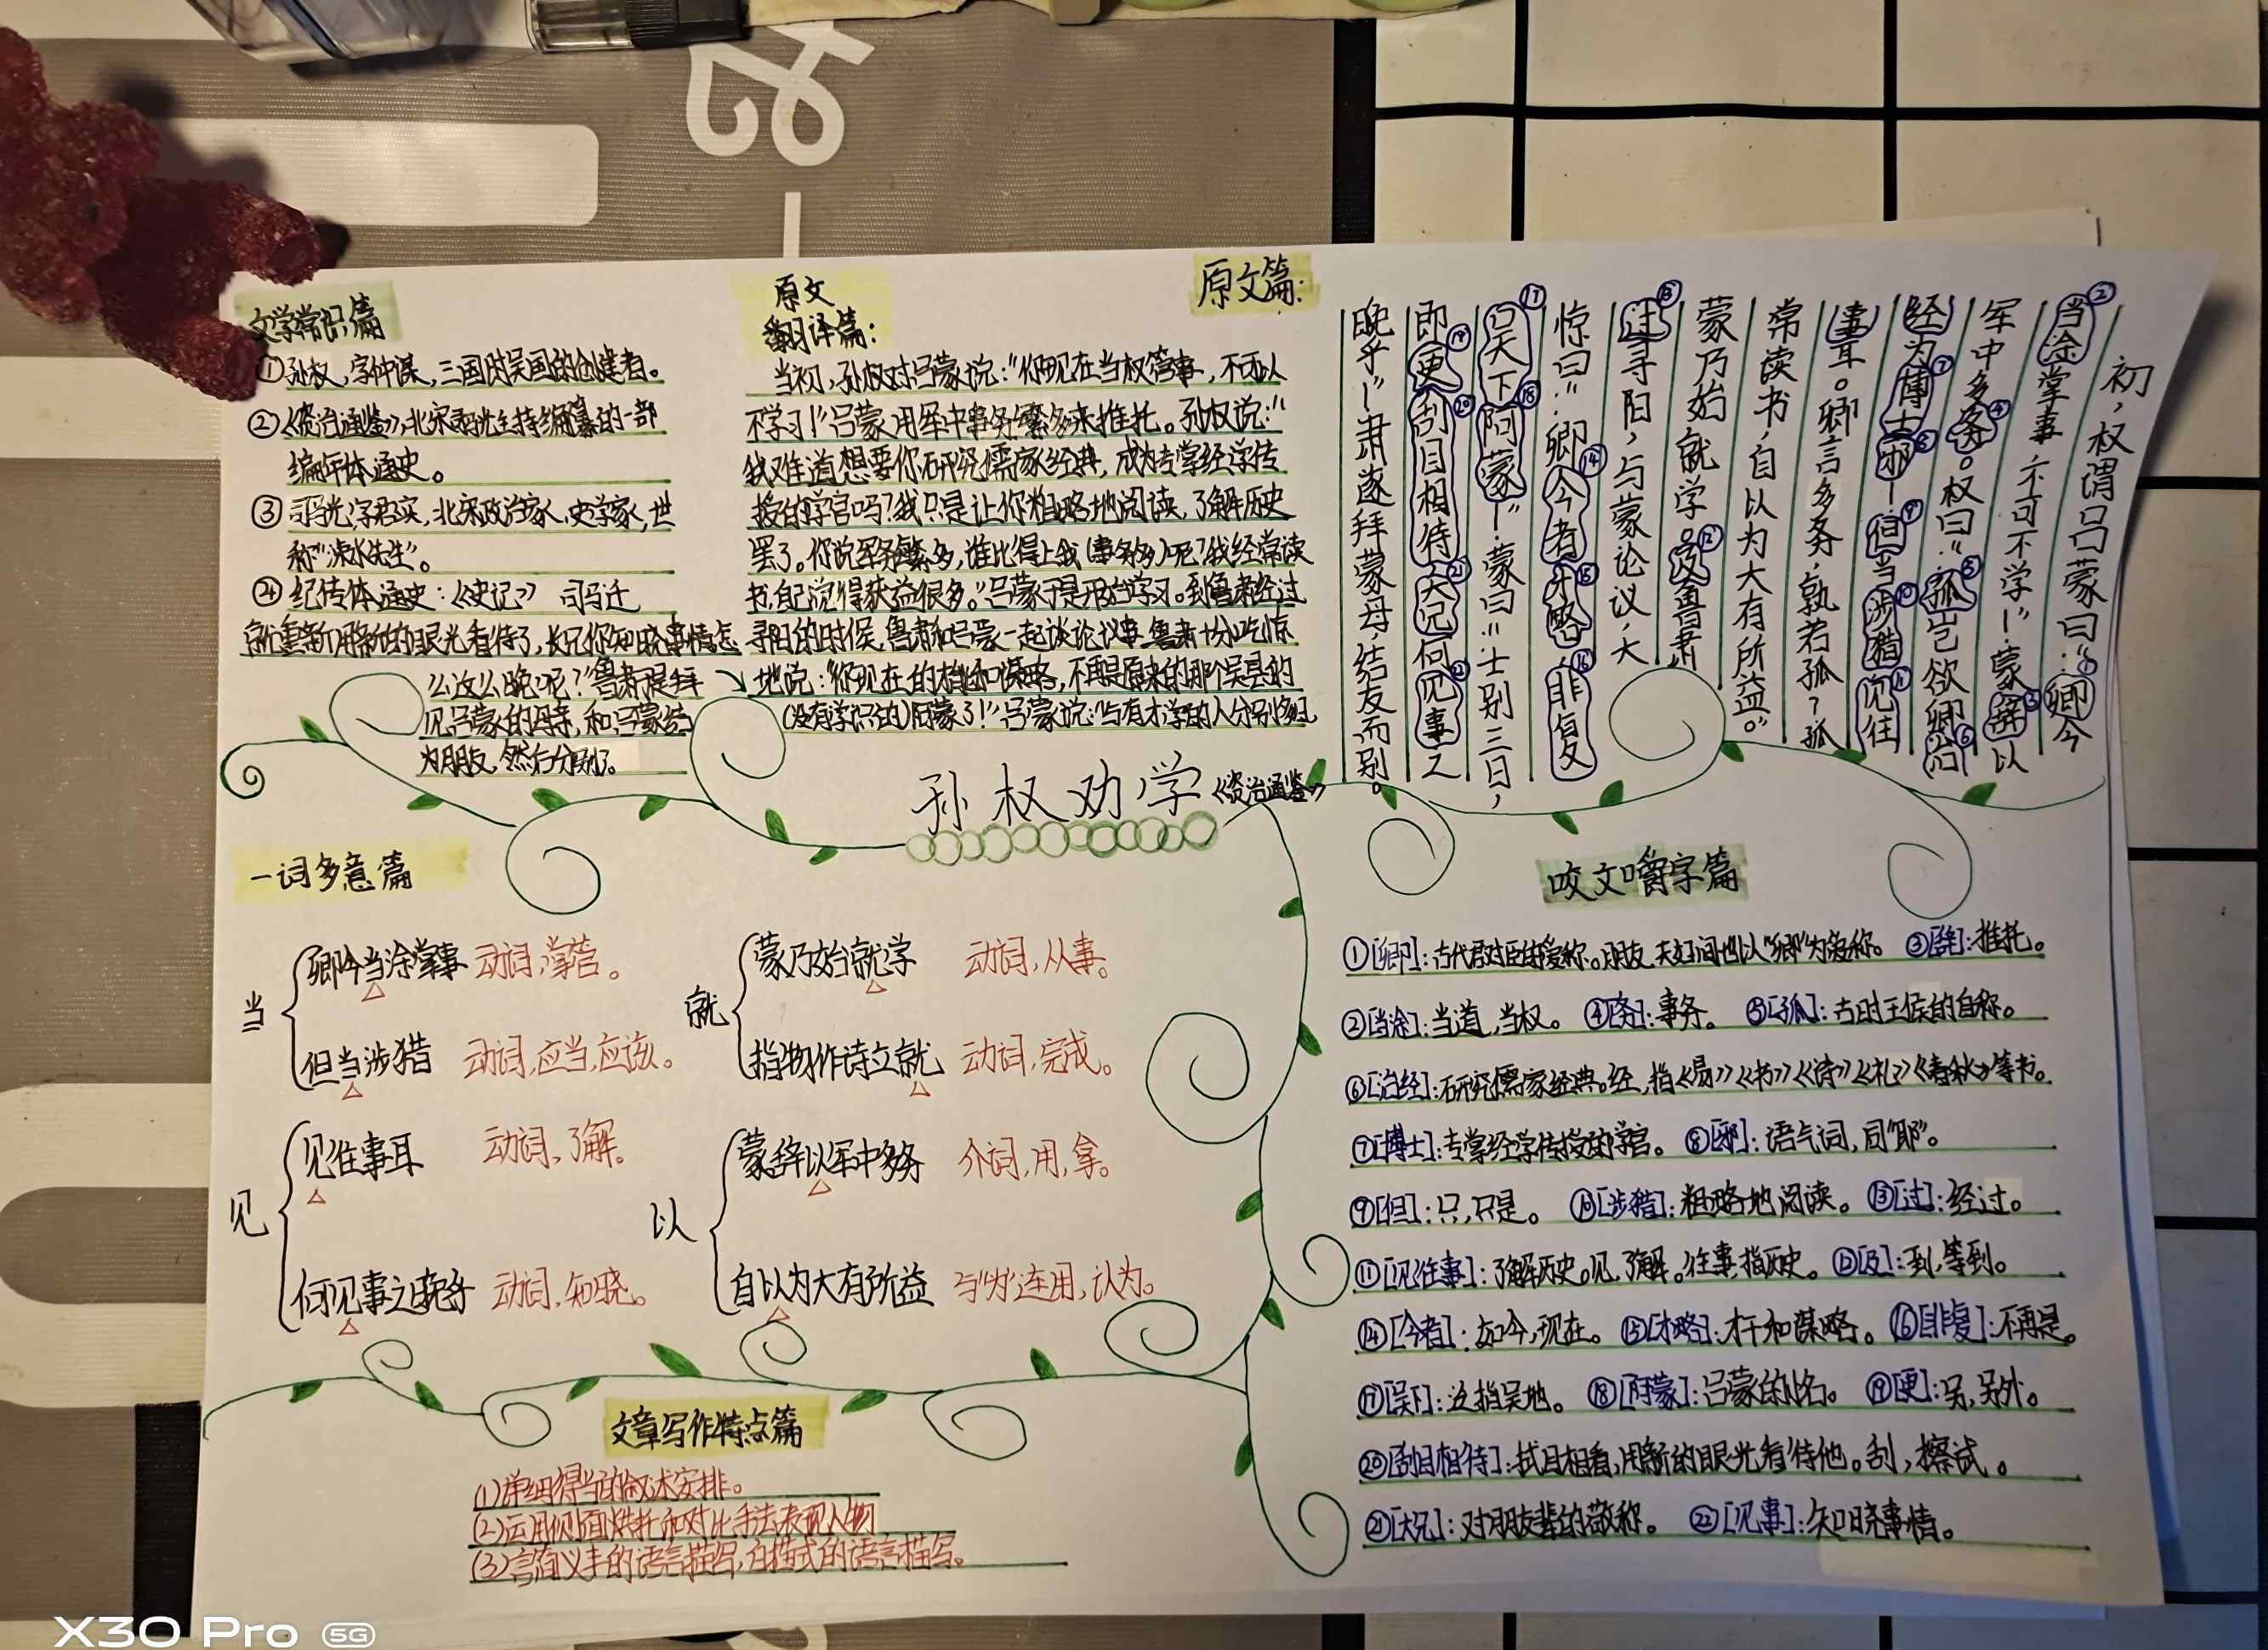 文学常识篇
①孙权,字仲谋,三国时吴国的创建者。
②《资治通鉴》,北宋司马光主持编纂的一部
编年体通史。
③司马光字君实,北宋政治家、史学家,世
称“涑水先生”。
④纪传体通史:《史记》 司马迁
原文
翻译篇:
当初,孙权对吕蒙说:“你现在当权管事,不可以
不学习!”吕蒙用军中事务繁多来推托。孙权说:“
我难道想要你研究儒家经典,成为专掌经学传
授的学官吗?我只是让你粗略地阅读,了解历史
罢了。你说军务繁多,谁比得上我(事务多)呢?我经常读
书,自己觉得获益很多。”吕蒙于是开始学习。到鲁肃经过
寻阳的时候,鲁肃和吕蒙一起谈论议事,鲁肃十分吃惊
地说:“你现在的才干和谋略,不再是原来的那个吴县的
(没有学识的)阿蒙了!”吕蒙说:“与有才学的人分别多日,
就重新用新的眼光看待了,长兄你知晓事情怎
么这么晚呢?”鲁肃提拜
见吕蒙的母亲,和吕蒙结
为朋友,然后分别了。
原文篇:
初,权谓吕蒙曰:“卿①今
当涂②掌事,不可不学!”蒙辞③以
军中多务④。权曰:“孤⑤岂欲卿治⑥
经为博士⑦邪⑧!但⑨当涉猎⑩见往⑪
事耳。卿言多务,孰若孤?孤
常读书,自以为大有所益。”
蒙乃始就学。及⑫鲁肃
过⑬寻阳,与蒙论议,大
惊曰:“卿今者⑭才略⑮非复⑯
吴下⑰阿蒙⑱!”蒙曰:“士别三日,
即更⑲刮目相待⑳,大兄㉑何见事㉒之
晚乎!”肃遂拜蒙母,结友而别。
孙权劝学《资治通鉴》
一词多意篇
当
卿今当涂掌事 动词,掌管。
但当涉猎 动词,应当,应该。
就
蒙乃始就学 动词,从事。
指物作诗立就 动词,完成。
见
见往事耳 动词,了解。
何见事之晚乎 动词,知晓。
以
蒙辞以军中多务 介词,用,拿。
自以为大有所益 与“为”连用,认为。
文章写作特点篇
(1)详细得当的叙述安排。
(2)运用侧面烘托和对比手法表现人物
(3)言简义丰的语言描写,白描式的语言描写。
咬文嚼字篇
①[卿]:古代君对臣的爱称。朋友、夫妇间也以“卿”为爱称。 ③[辞]:推托。
②[当涂]:当道,当权。 ④[务]:事务。 ⑤[孤]:古时王侯的自称。
⑥[治经]:研究儒家经典。经,指《易》《书》《诗》《礼》《春秋》等书。
⑦[博士]:专掌经学传授的学官。 ⑧[邪]:语气词,同“耶”。
⑨[但]:只,只是。 ⑩[涉猎]:粗略地阅读。 ⑬[过]:经过。
⑪[见往事]:了解历史。见,了解。往事,指历史。 ⑫[及]:到,等到。
⑭[今者]:如今,现在。 ⑮[才略]:才干和谋略。 ⑯[非复]:不再是。
⑰[吴下]:这指吴地。 ⑱[阿蒙]:吕蒙的小名。 ⑲[更]:另,另外。
⑳[刮目相待]:拭目相看,用新的眼光看待他。刮,擦试。
㉑[大兄]:对朋友辈的敬称。 ㉒[见事]:知晓事情。
X30 Pro 5G